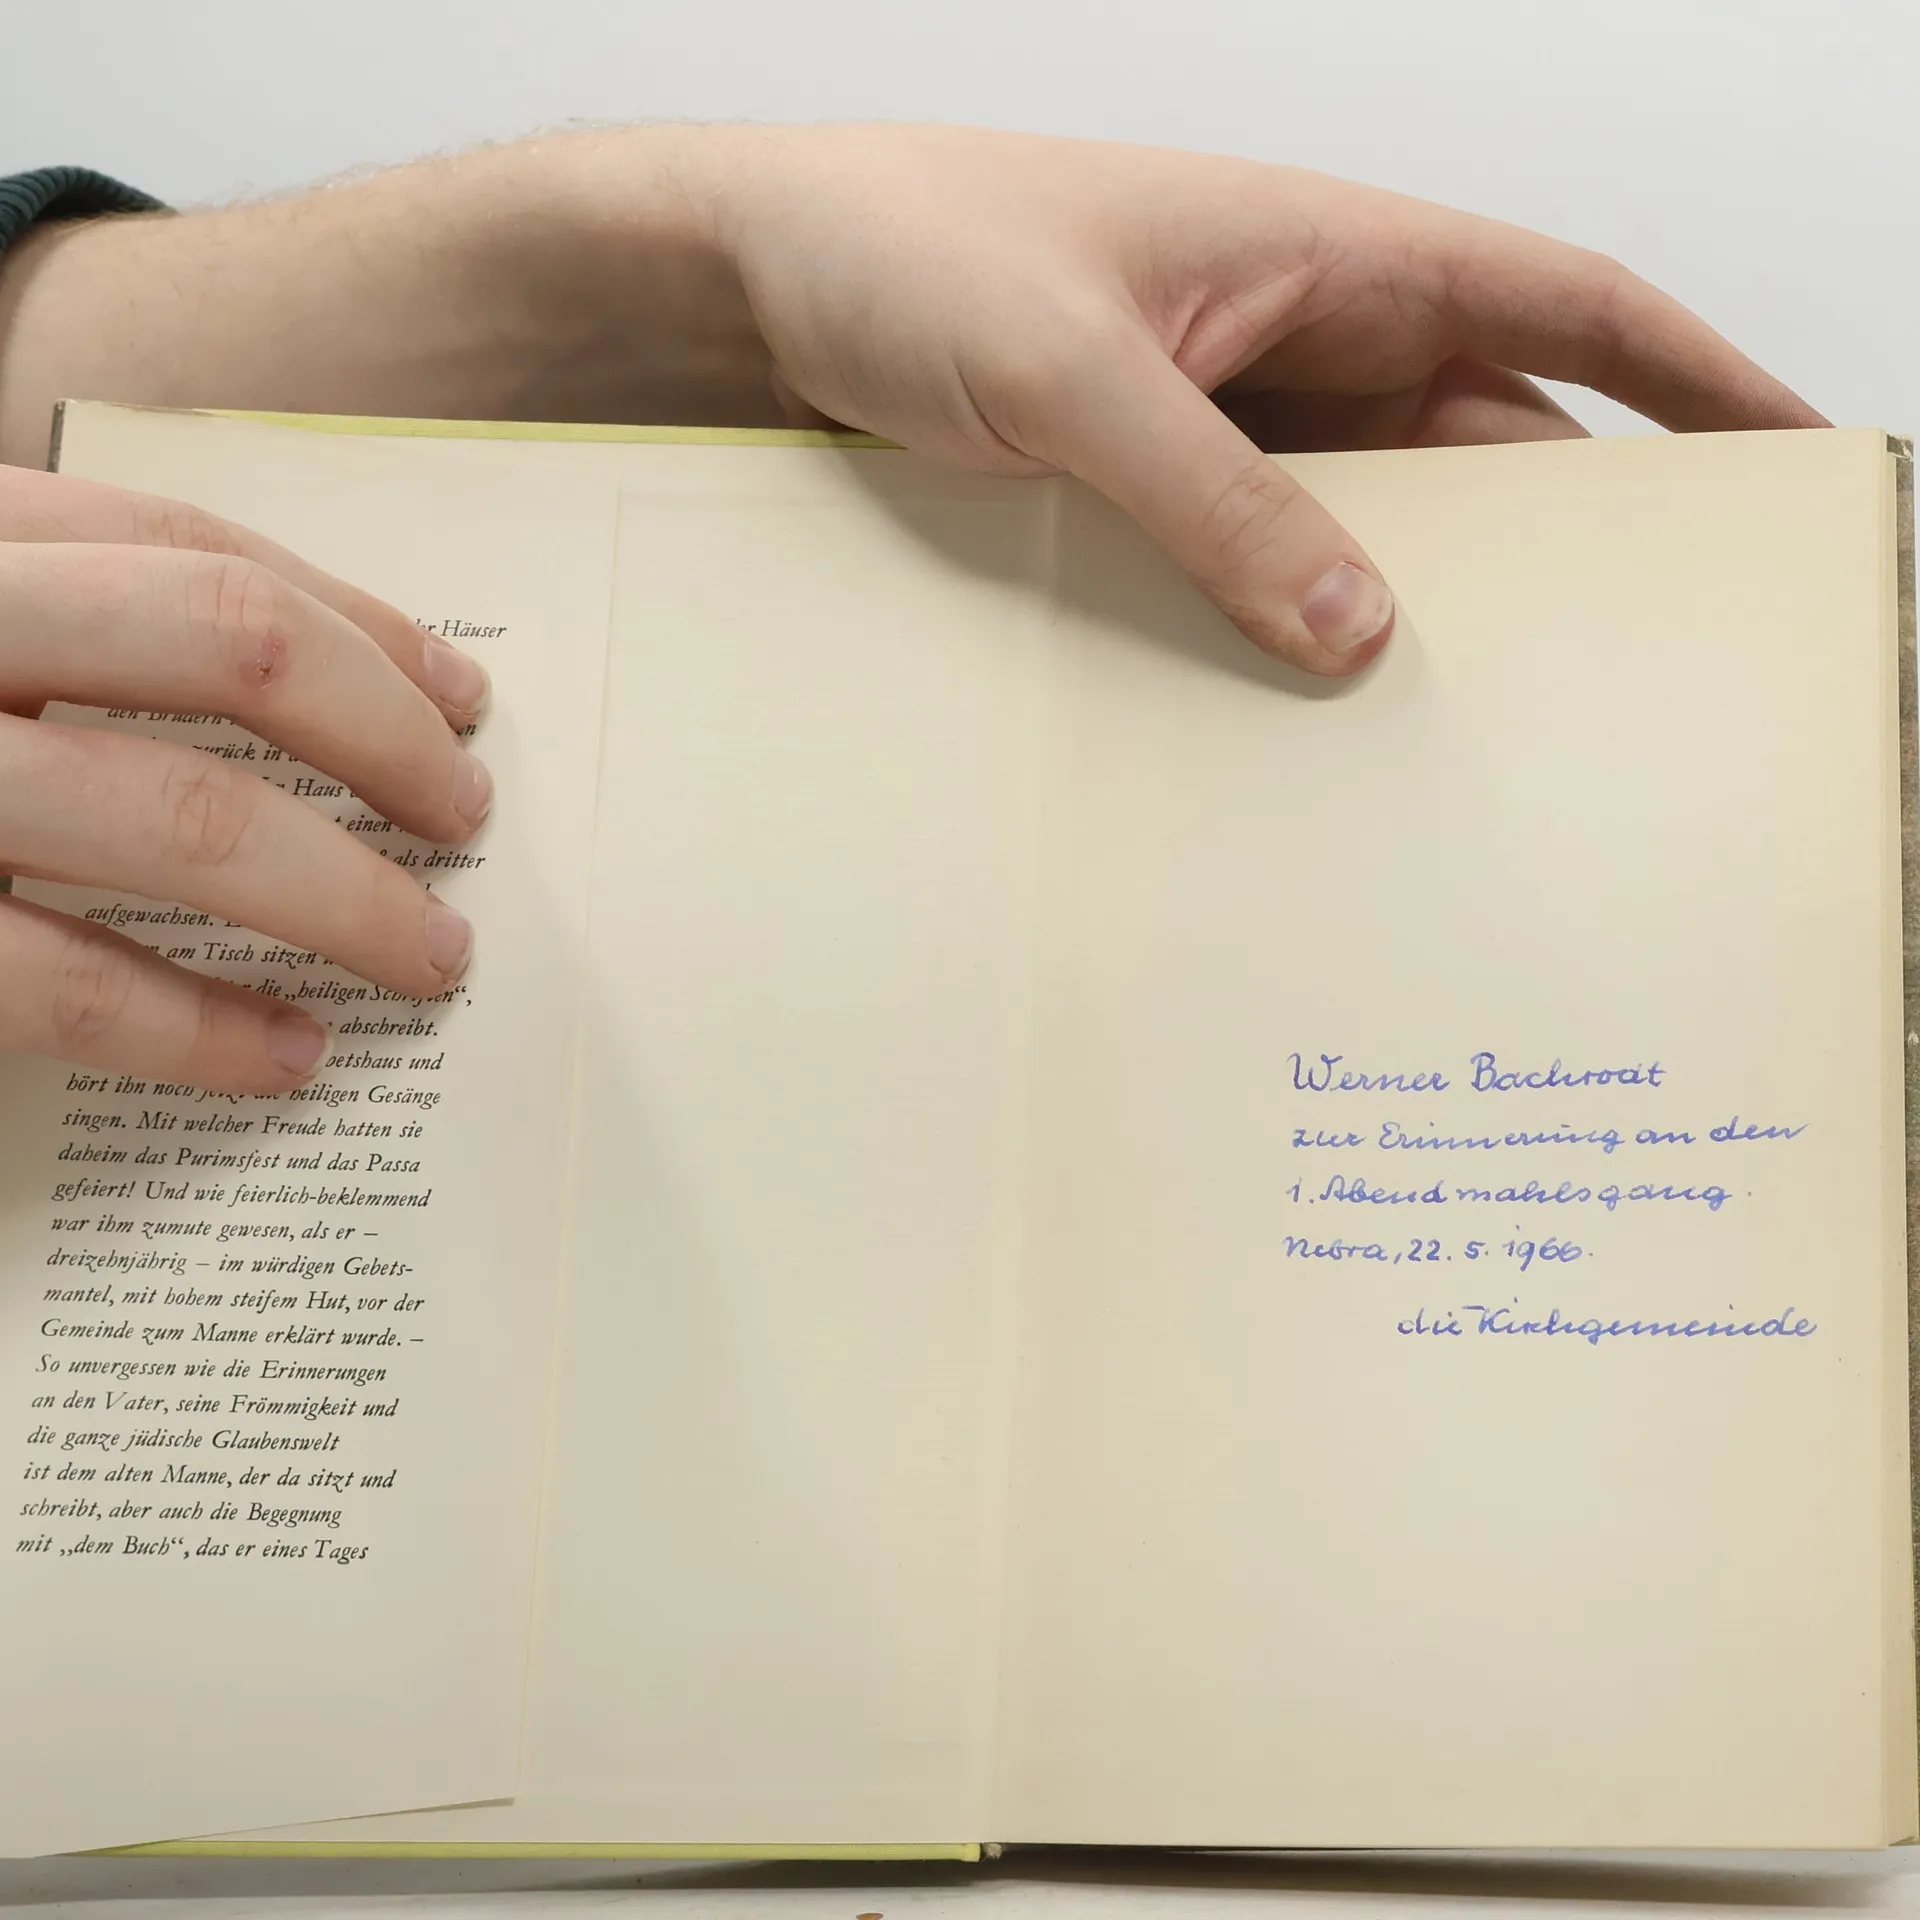 Häuser
den Brüdern
zurück in
Haus
einen
als dritter
aufgewachsen.
am Tisch sitzen
die „heiligen Schriften“,
abschreibt.
und
hört ihn noch jetzt die heiligen Gesänge
singen. Mit welcher Freude hatten sie
daheim das Purimsfest und das Passa
gefeiert! Und wie feierlich-beklemmend
war ihm zumute gewesen, als er –
dreizehnjährig – im würdigen Gebets-
mantel, mit hohem steifem Hut, vor der
Gemeinde zum Manne erklärt wurde. –
So unvergessen wie die Erinnerungen
an den Vater, seine Frömmigkeit und
die ganze jüdische Glaubenswelt
ist dem alten Manne, der da sitzt und
schreibt, aber auch die Begegnung
mit „dem Buch“, das er eines Tages
Werner Bachrodt
zur Erinnerung an den
1. Abendmahlsgang.
Nebra, 22. 5. 1966.
die Kirchgemeinde